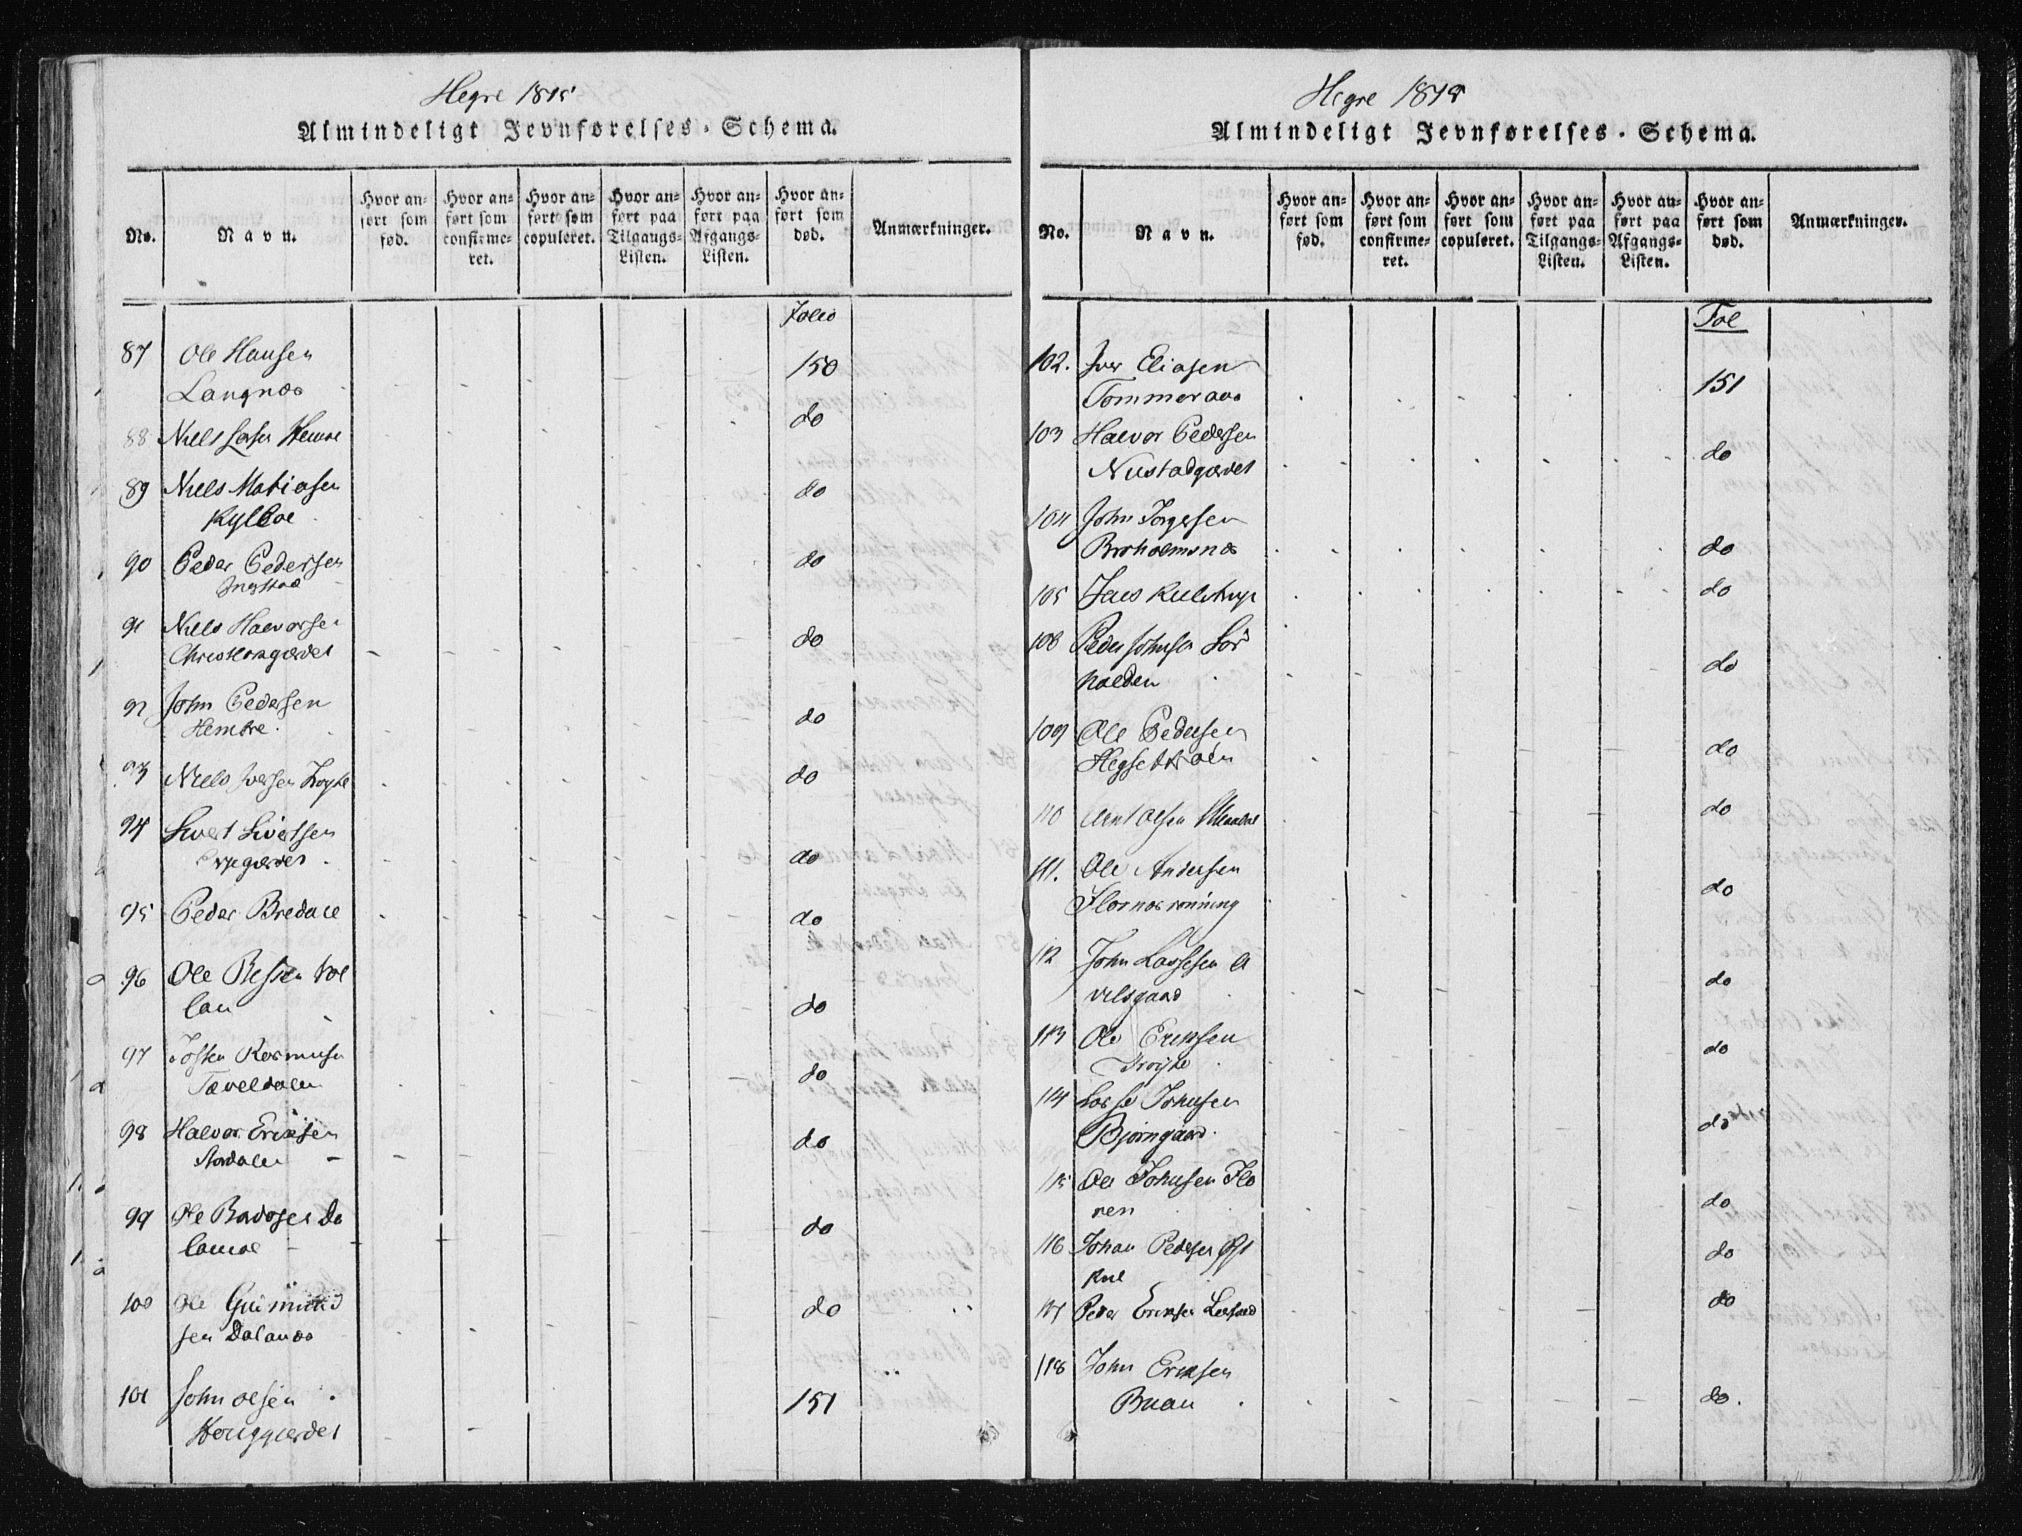 Hegre 1815
Almindeligt Jevnførelses-Schema.
No.
Navn.
Hvor anført som fød.
Hvor anført som confirmeret.
Hvor anført som copuleret.
Hvor anført paa Tilgangs-Listen.
Hvor anført paa Afgangs-Listen.
Hvor anført som død.
Anmærkninger.
Folio
87 Ole Hansen
Langnæs
150
88 Niels
do
89 Niels Matiasen
Kylloe
do
90 Peder Pedersen
Ingstad
do
91 Niels Halvorsen
Christensgjærdet
do
92 John Pedersen
Hembre
do
93 Niels Iversen
do
94 Sivert Sivertsen
do
95 Peder Bredall
do
96 Ole Resten Vol
lan
do
97 Josten Rasmusen
Tæveldalen
do
98 Halvor Eriksen
Stordalen
do
99 Ole Baardsen Da
lamoe
do
100 Ole Gudmund
sen Dalaaas
do
101 John Olsen
Houggjerdet
151
Hegre 1815
Almindeligt Jevnførelses-Schema.
No.
Navn.
Hvor anført som fød.
Hvor anført som confirmeret.
Hvor anført som copuleret.
Hvor anført paa Tilgangs-Listen.
Hvor anført paa Afgangs-Listen.
Hvor anført som død.
Anmærkninger.
Fol
102. Iver Eliasen
Tommeraas
151
103 Halvor Pedersen
Nustadgjærdet
do
104 John Jørgesen
Borholmsnæs
do
105 Jaes Kulstrup
do
108 Peder Johnsen Sør
halden
do
109 Ole Pedersen
Hegsetvolen
do
110 Arnt Olsen
do
111. Ole Andersen
Flornæsrønning
do
112 John Lassesen A
velsgaard
do
113 Ole Eriksen
Trøyte
do
114 Lasse Johnsen
Bjørngaard
do
115 Ole Johnsen Flo
ren
do
116 Johan Pedersen Øst
kil
do
117 Peder Eriksen
do
118 John Eriksen
Buan
do.